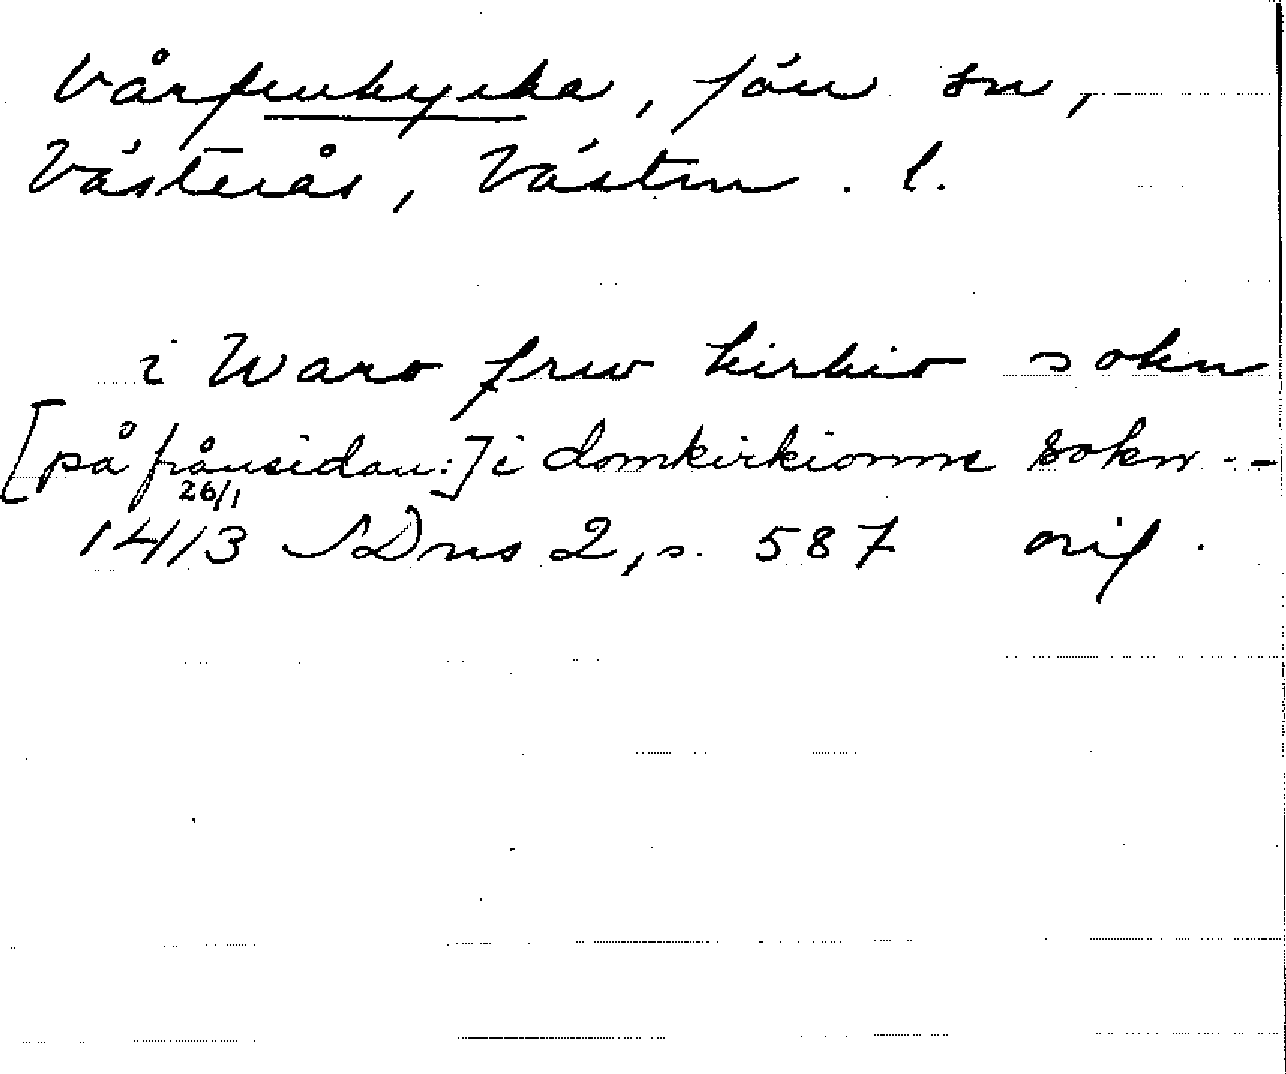 Vårfrukyrka, förr sn,
Västerås, Västm. l.
i Waro frw kirkio sokn
[på frånsidan:] i domkirkionne sokn --
26/1
1413 SDns 2, s. 587 orig.